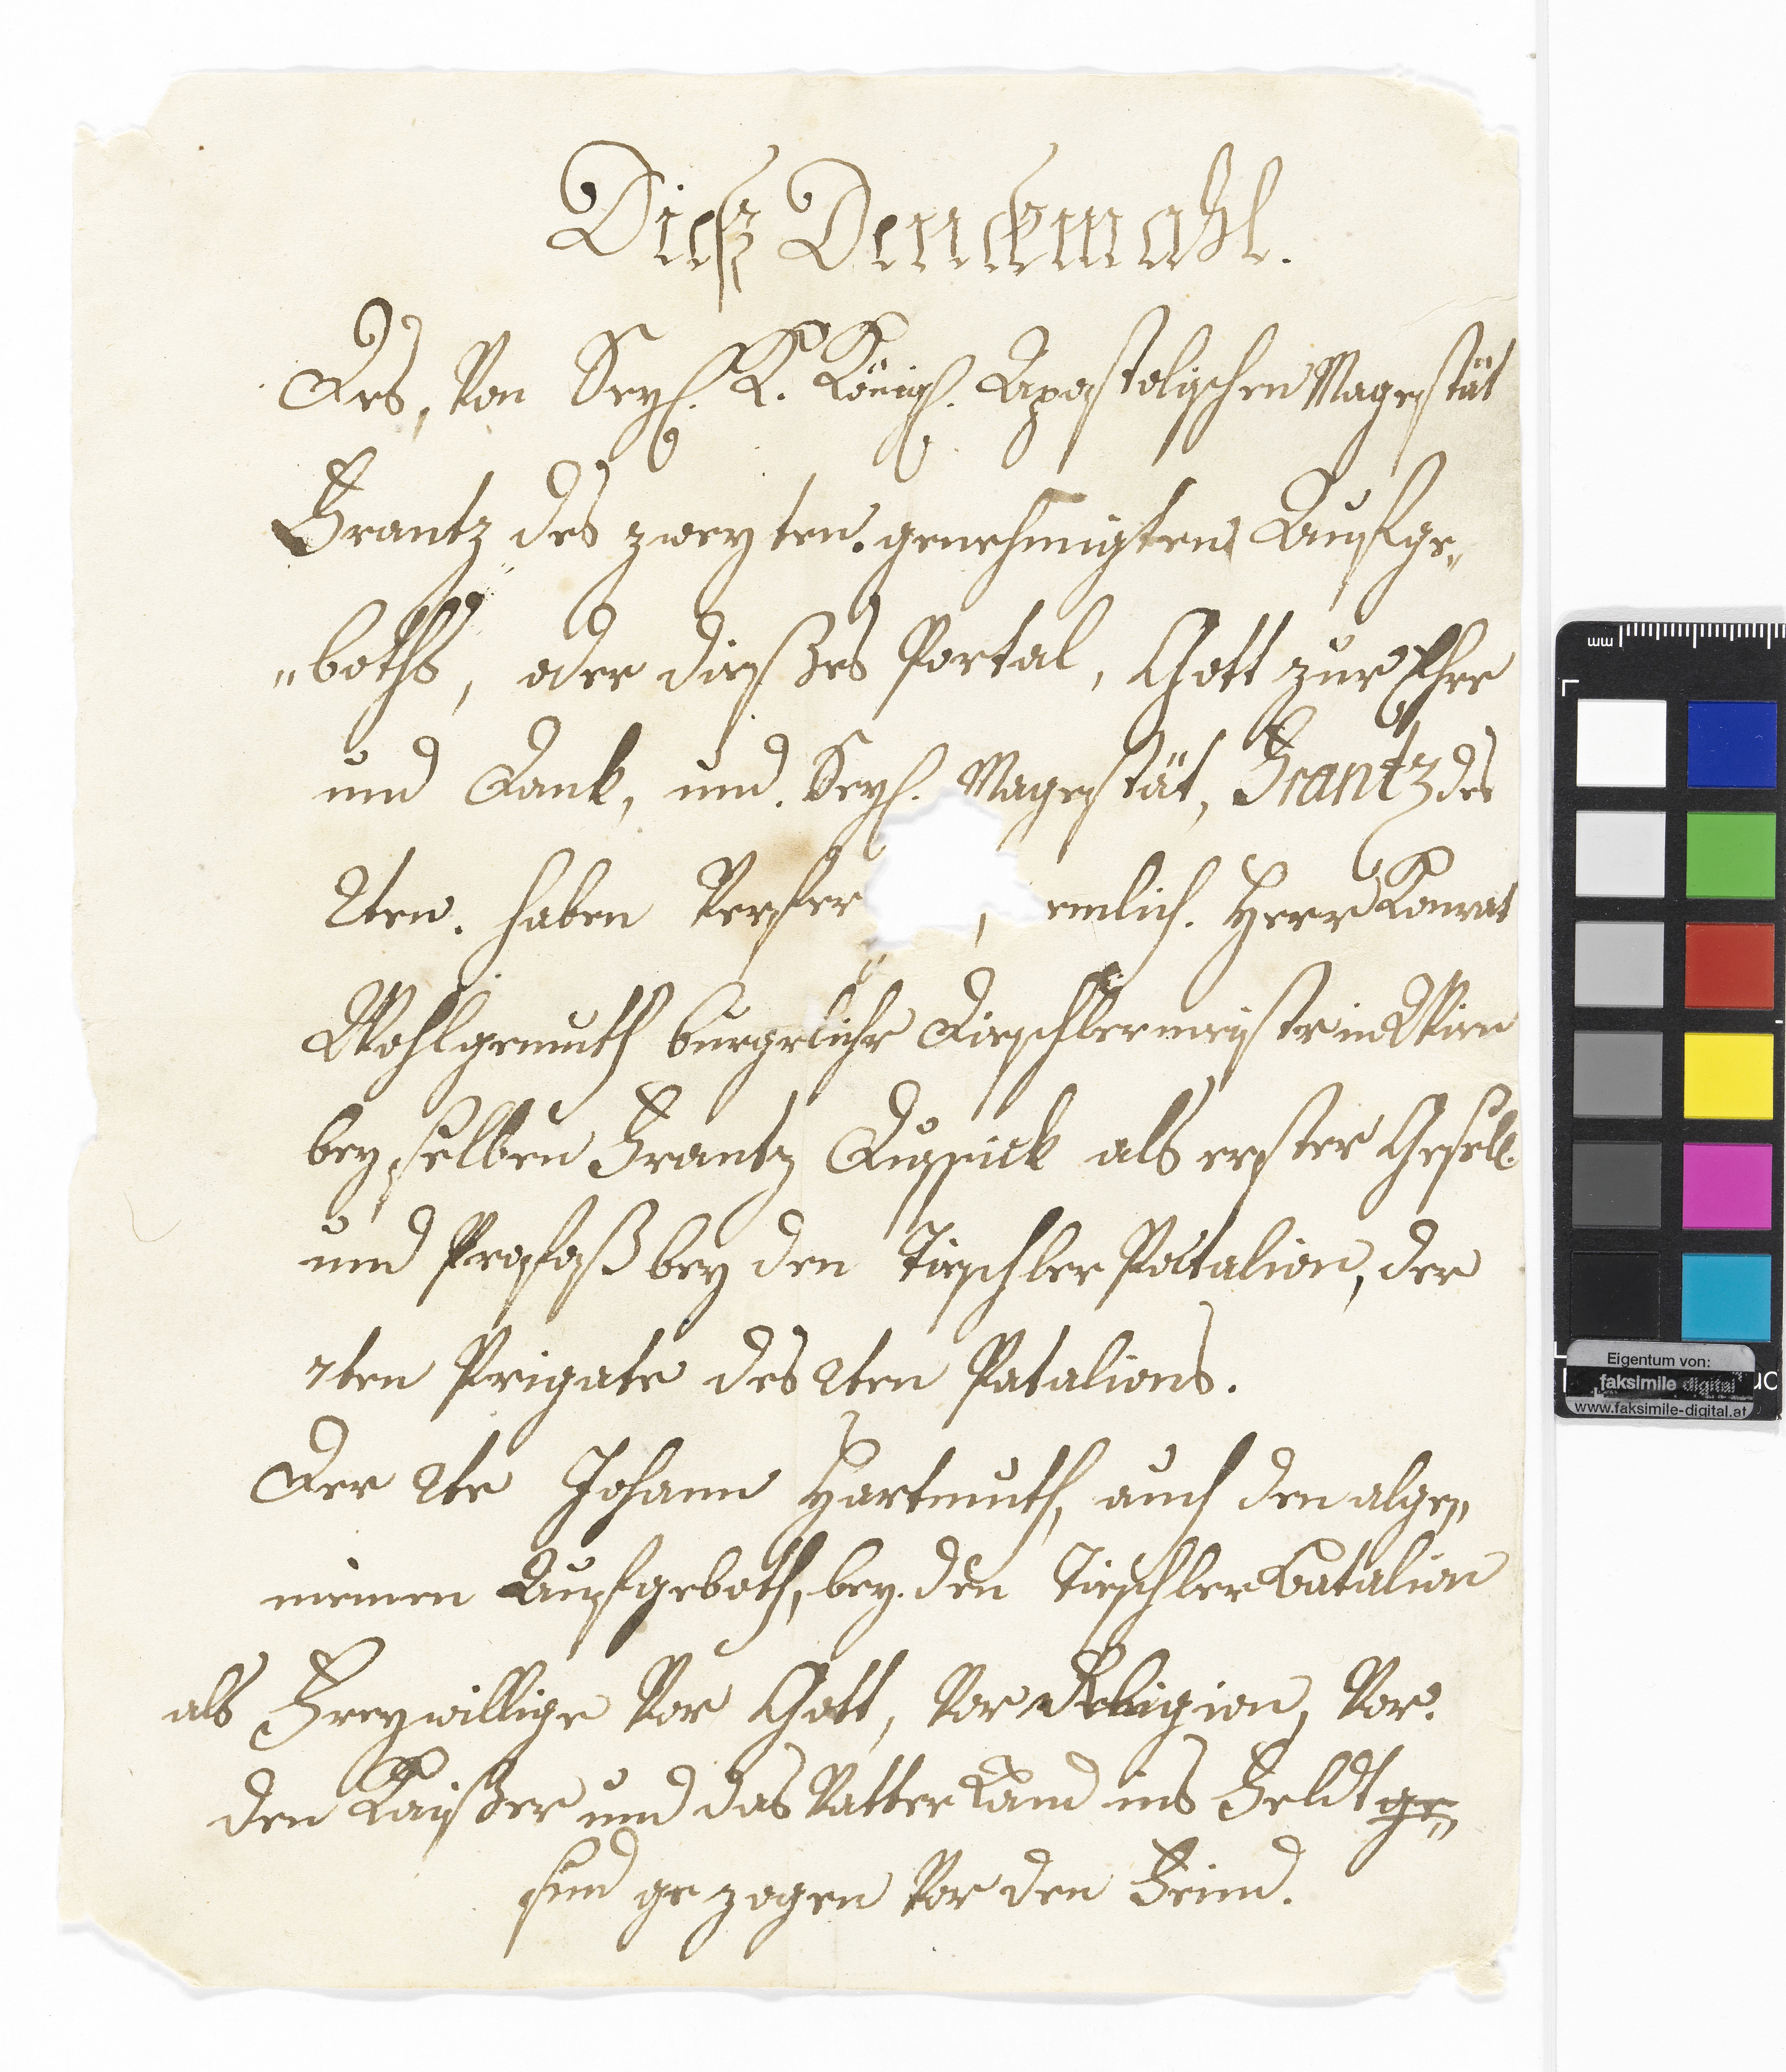 Dieß Denckmahl.
Des, Von Seyl. K. Königl. Apostolischen Magestät
Frantz des zweyten. genehmigten Aufge„
„boths, oder dießes Portal, Gott zur Ehre
und Dank, und. Seyl. Magestät, Frantz des
2ten. haben Verfer , emlich. Herr Konrat
Wohlgemuth burgerlicher Dieschlermeister in Wien
bey selben Frantz als erster Gesell.
und Profoß bey den Tieschler Patalion, der
7ten Prigate des 2ten Patalions.
Der 2te Johann Hartmuth, auch den alge„
meinen Aufgeboth, bey. den Tieschler Batalion
als Freywillige Vor Gott, Vor Religion, Vor.
den Kayßer und das Vatterland ins Feldt ge„
sind gezogen Vor den Feind.
mm
Eigentum von:
faksimile digital
www.faksimile-digital.at